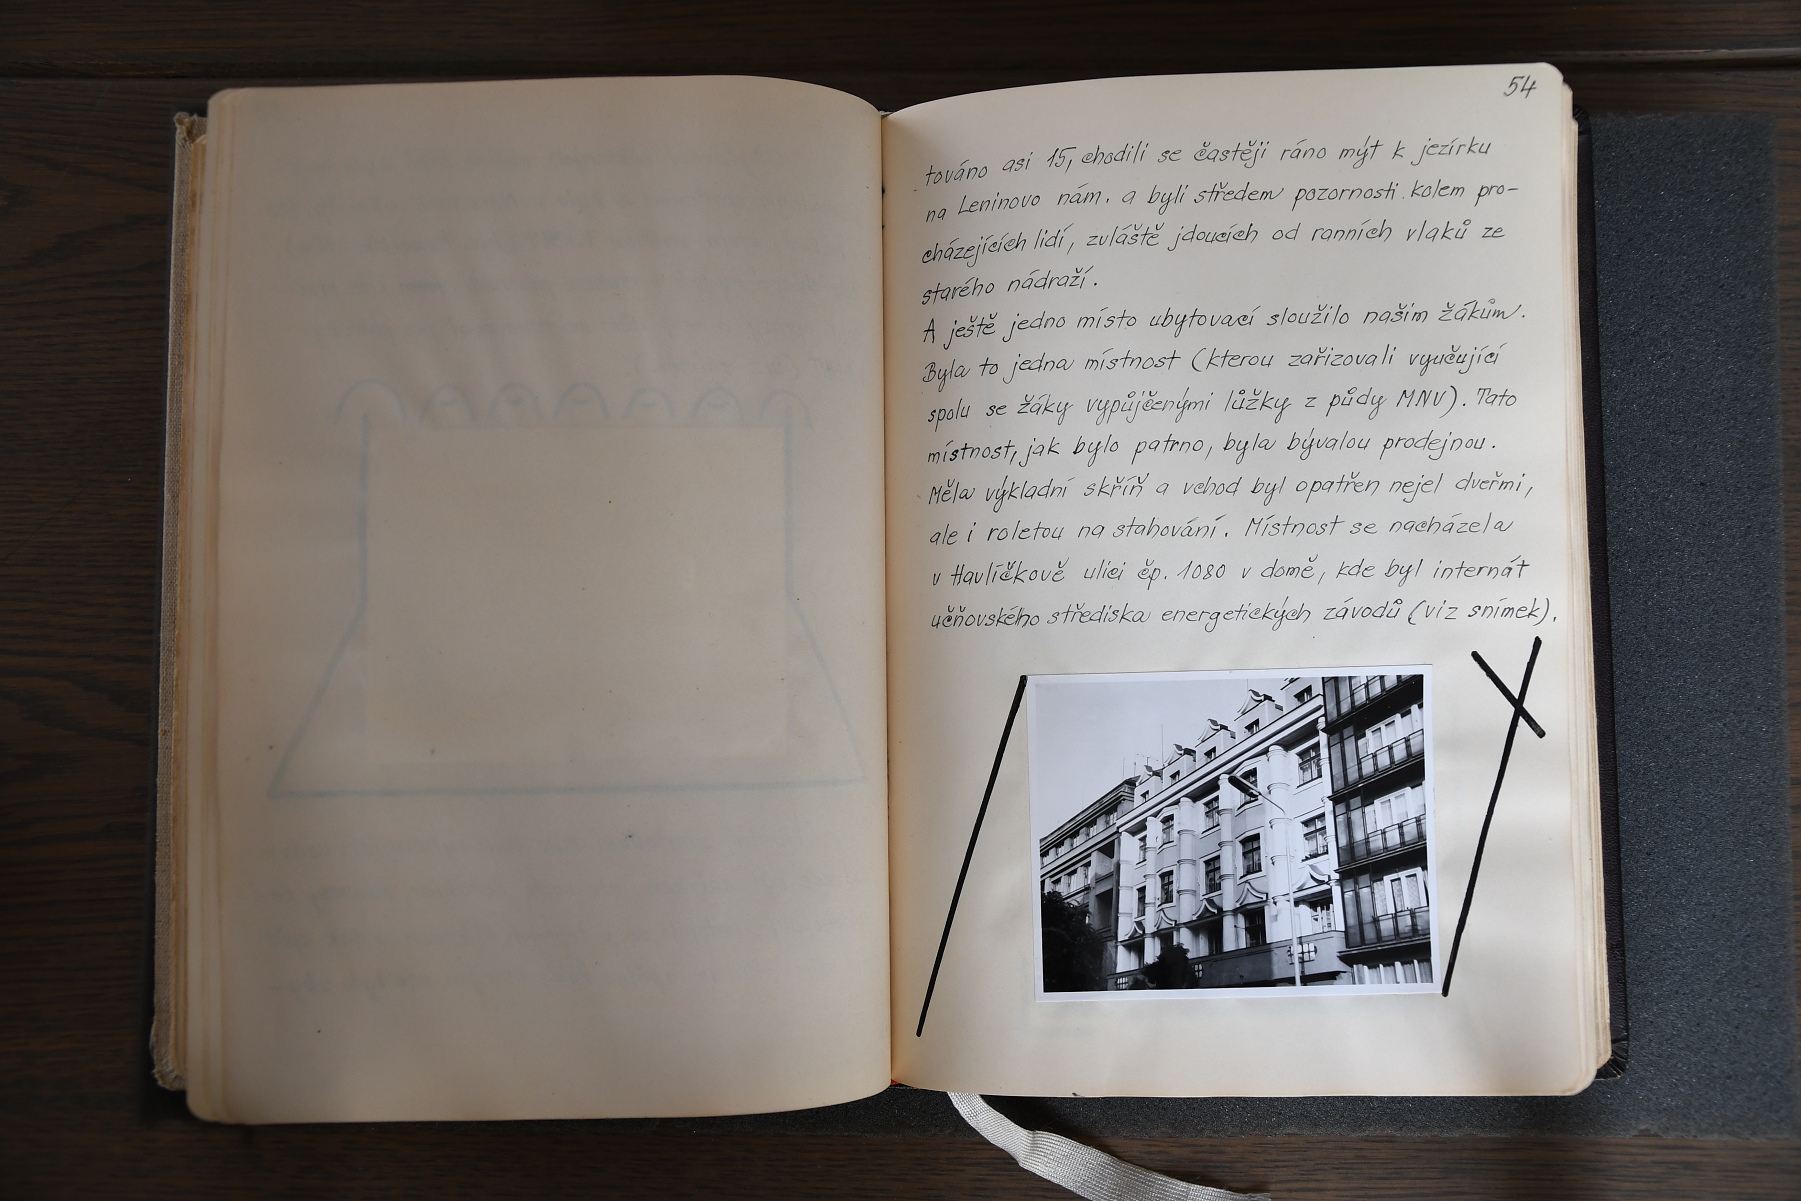 54
továno asi 15, chodili se častěji ráno mýt k jezírku
na Leninovo nám. a byli středem pozornosti kolem pro-
cházejících lidí, zvláště jdoucích od ranních vlaků ze
starého nádraží.
A ještě jedno místo ubytovací sloužilo našim žákům.
Byla to jedna místnost (kterou zařizovali vyučující
spolu se žáky vypůjčenými lůžky z půdy MNV). Tato
místnost, jak bylo patrno, byla bývalou prodejnou.
Měla výkladní skříň a vchod byl opatřen nejel dveřmi,
ale i roletou na stahování. Místnost se nacházela
v Havlíčkově ulici čp. 1080 v domě, kde byl internát
učňovského střediska energetických závodů (viz snímek).